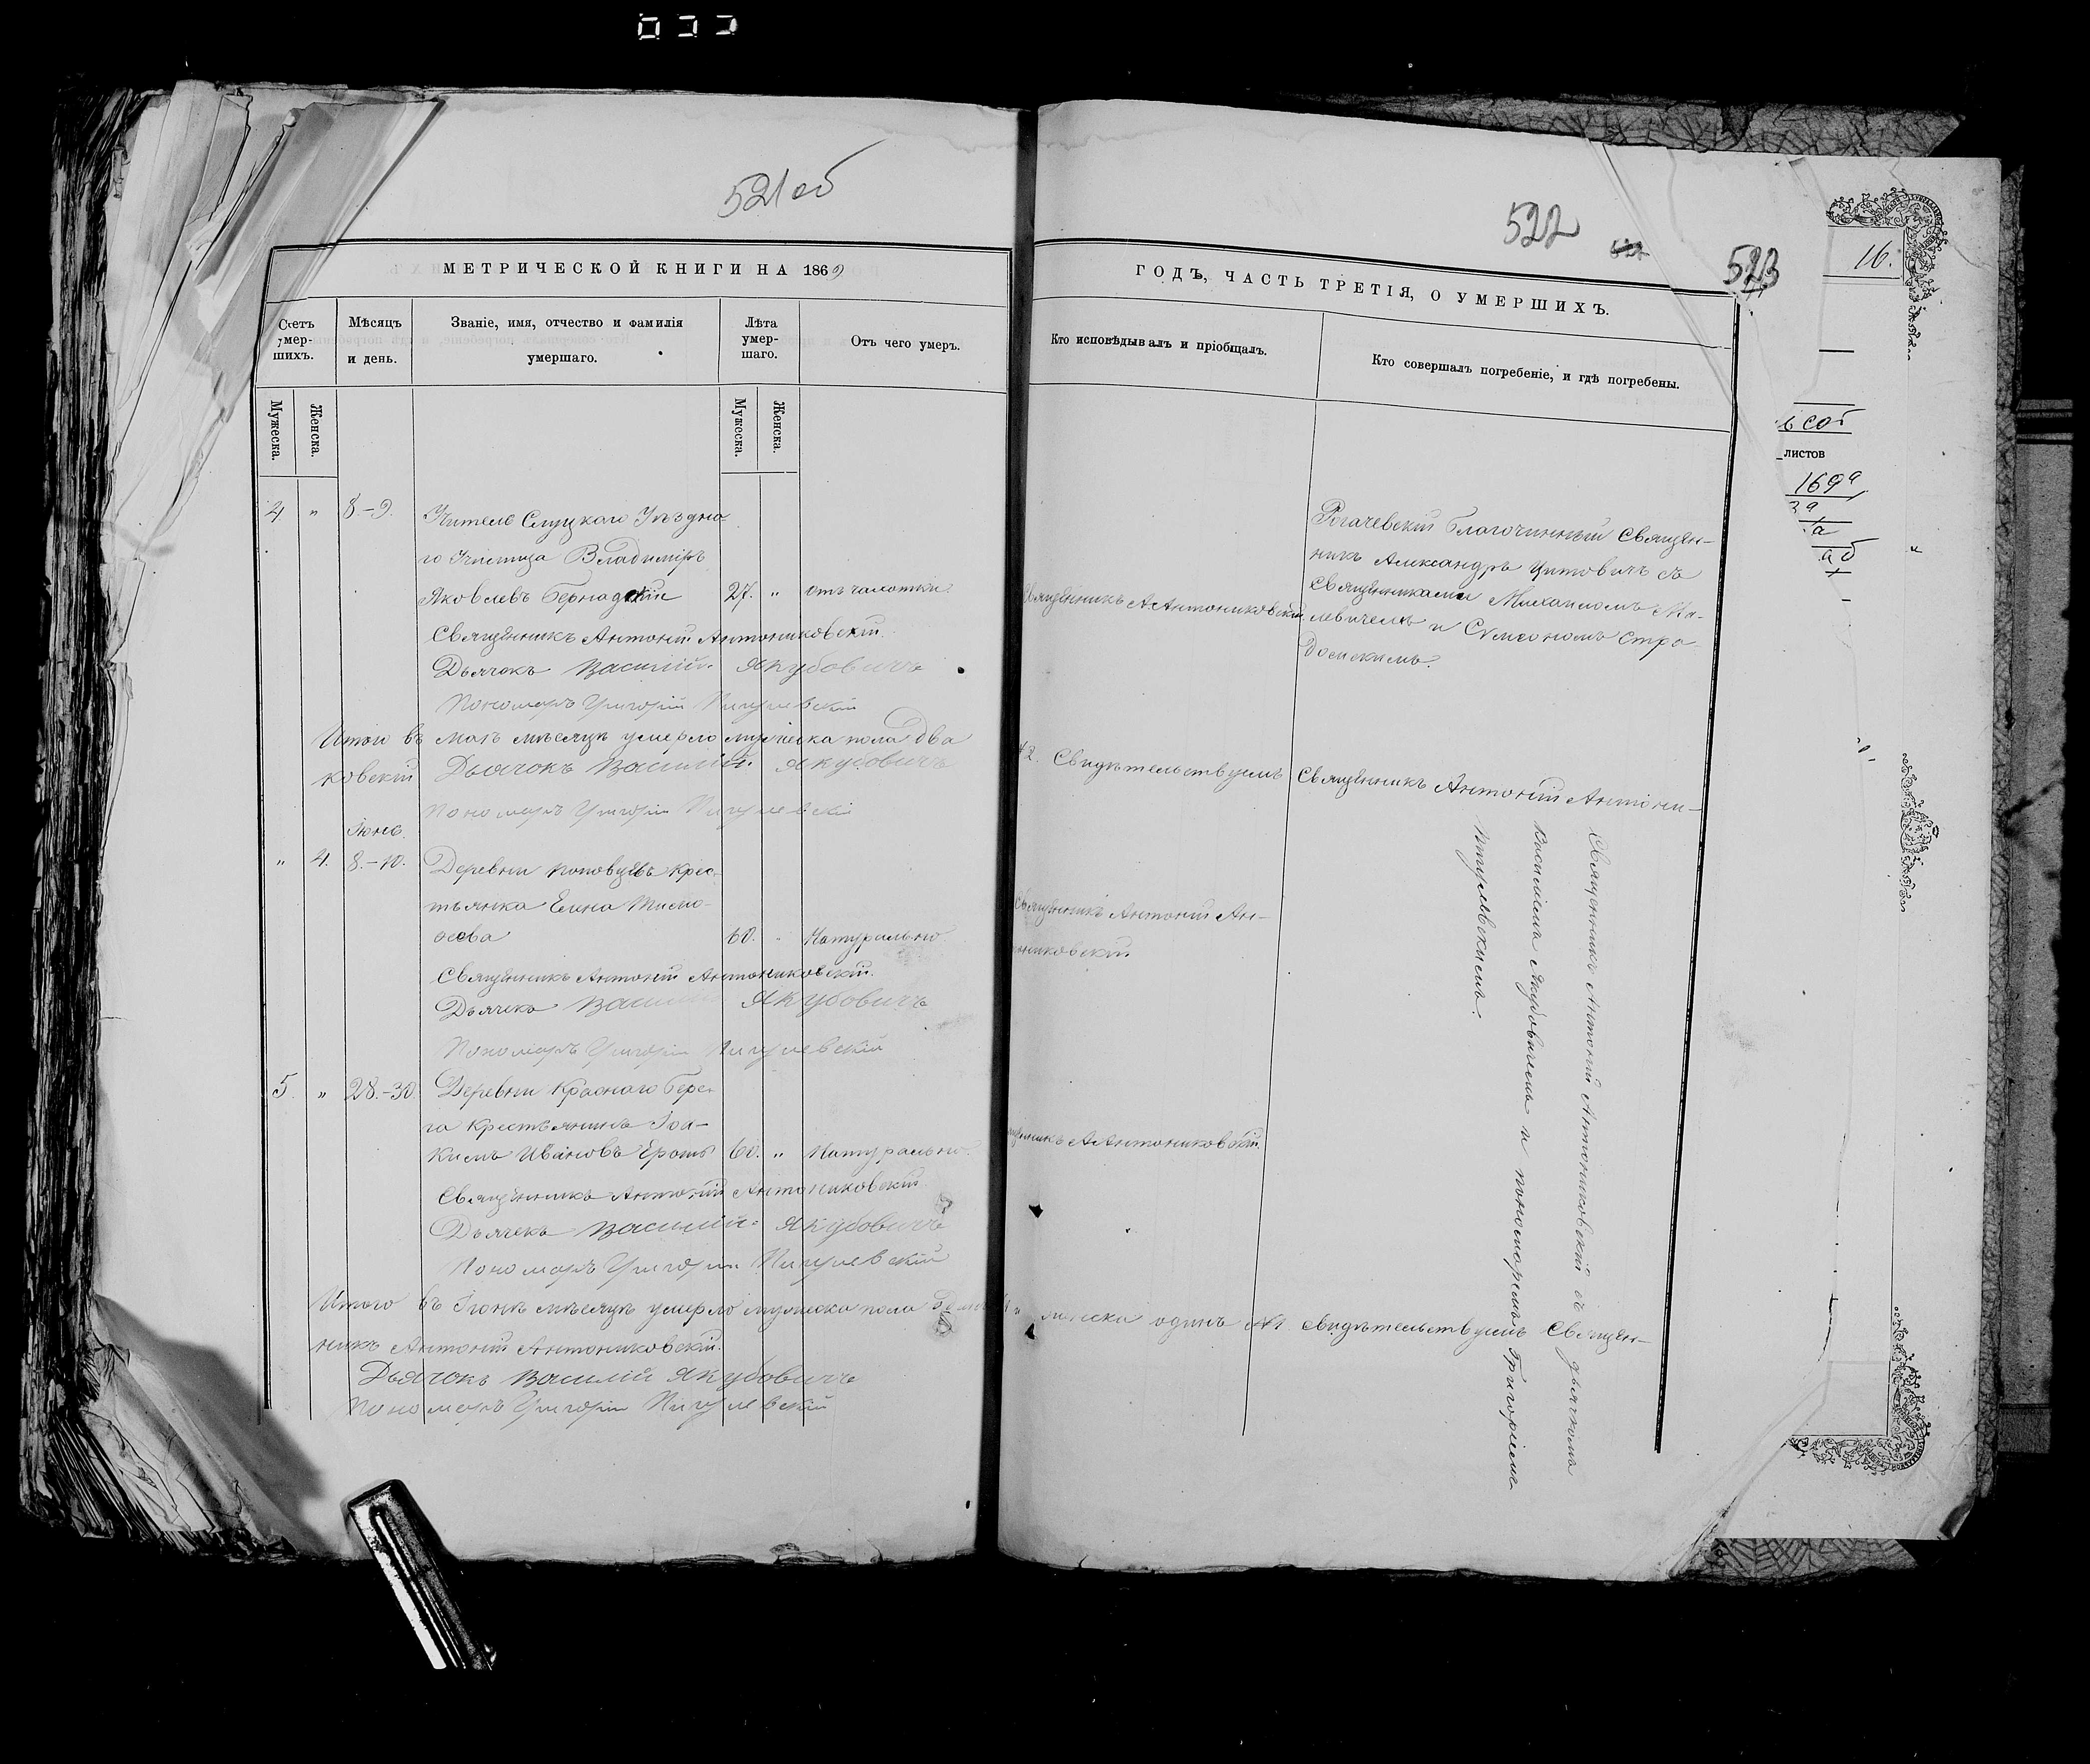 521 об
МЕТРИЧЕСКОЙ КНИГИ НА 1869
Счетъ умер-шихъ.
Мѣсяцъ и день.
Званіе, имя, отчество и фамилія умершаго.
Лѣта умер-шаго.
Отъ чего умеръ.
Мужеска.
Женска.
Мужеска.
Женска.
4. " 8.-9. Учитель Слуцкаго Уѣздна-
го Училища Владиміръ
Яковлевъ 27. " отъ чахотки.
Священникъ Антоній Антониковскій.
Дьячокъ Василій Якубовичъ
Пономарь Григорій
Итого въ маѣ мѣсяцѣ умерло мужеска пола два
ковскій Дьячокъ Василій Якубовичъ
Пономарь Григорій
Іюнь.
" 4. 8.-10. Деревни крес-
тьянка Елена
60. Натурально
Священникъ Антоній Антониковскій.
Дьячекъ Василій Якубовичъ
Пономарь Григорій
5. " 28.-30. Деревни Краснаго Бере-
га крестьянинъ Іоа-
кимъ Ивановъ 60. " Натурально.
Священникъ Антоній Антониковскій
Дьячекъ Василій Якубовичъ
Пономарь Григорій
Итого въ Іюнѣ мѣсяцѣ умерло мужеска пола
никъ Антоній Антониковскій.
Дьячокъ Василій Якубовичъ
Пономарь Григорій
522
523
ГОДЪ, ЧАСТЬ ТРЕТІЯ, О УМЕРШИХЪ.
Кто исповѣдывалъ и пріобщалъ.
Кто совершалъ погребеніе, и гдѣ погребены.
Рогачевскій благочинный Священ-
никъ Александръ Цитовичъ съ
Священниками Михаиломъ Ма-
Священникъ А. Антониковскій. левичемъ и Сумеономъ Стра-
домскимъ.
2. Свидѣтельствуемъ Священникъ Антоній Антони-
Священникъ Антоній Ан-
никовскій.
А. Антониковскій.
одинъ №1. свидѣтельствуемъ Священ-
Священникъ Антоній Антониковскій съ дьячкомъ
Василіемъ Якубовичемъ и пономаремъ Григоріемъ
16.
листов
169а